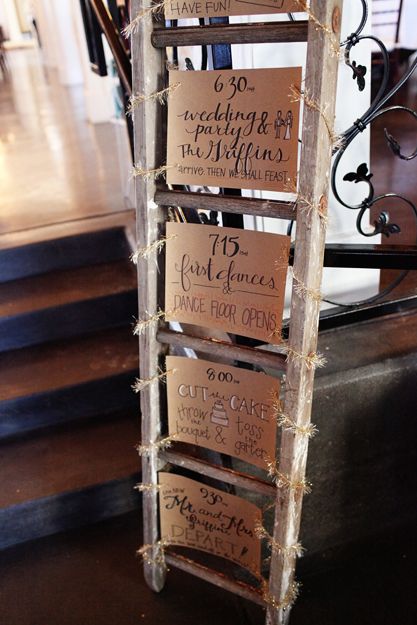 HAVE FUN!
6:30 PM
wedding
party &
The Griffins
ARRIVE. THEN WE SHALL FEAST.
7:15 PM
first dances
&
DANCE FLOOR OPENS
8:00 PM
CUT the CAKE
throw the bouquet & toss the garter
9:30 PM
the new
Mr. and Mrs.
Griffin
DEPART